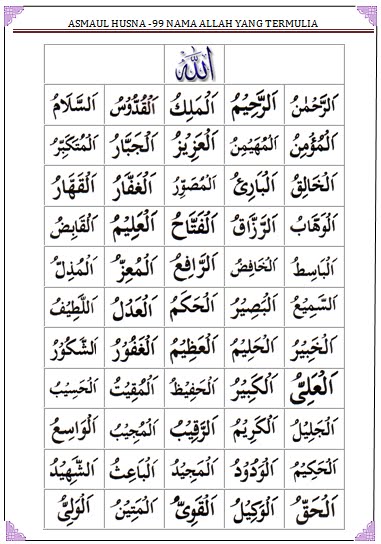 ASMAUL HUSNA -99 NAMA ALLAH YANG TERMULIA
الله
اَلرَّحْمٰنُ اَلرَّحِيْمُ اَلْمَلِكُ اَلْقُدُّوْسُ اَلسَّلَامُ
اَلْمُؤْمِنُ اَلْمُهَيْمِنُ اَلْعَزِيْزُ اَلْجَبَّارُ اَلْمُتَكَبِّرُ
اَلْخَالِقُ اَلْبَارِئُ اَلْمُصَوِّرُ اَلْغَفَّارُ اَلْقَهَّارُ
اَلْوَهَّابُ اَلرَّزَّاقُ اَلْفَتَّاحُ اَلْعَلِيْمُ اَلْقَابِضُ
اَلْبَاسِطُ اَلْخَافِضُ اَلرَّافِعُ اَلْمُعِزُّ اَلْمُذِلُّ
اَلسَّمِيْعُ اَلْبَصِيْرُ اَلْحَكَمُ اَلْعَدْلُ اَللَّطِيْفُ
اَلْخَبِيْرُ اَلْحَلِيْمُ اَلْعَظِيْمُ اَلْغَفُوْرُ اَلشَّكُوْرُ
اَلْعَلِيُّ اَلْكَبِيْرُ اَلْحَفِيْظُ اَلْمُقِيْتُ اَلْحَسِيْبُ
اَلْجَلِيْلُ اَلْكَرِيْمُ اَلرَّقِيْبُ اَلْمُجِيْبُ اَلْوَاسِعُ
اَلْحَكِيْمُ اَلْوَدُوْدُ اَلْمَجِيْدُ اَلْبَاعِثُ اَلشَّهِيْدُ
اَلْحَقُّ اَلْوَكِيْلُ اَلْقَوِيُّ اَلْمَتِيْنُ اَلْوَلِيُّ